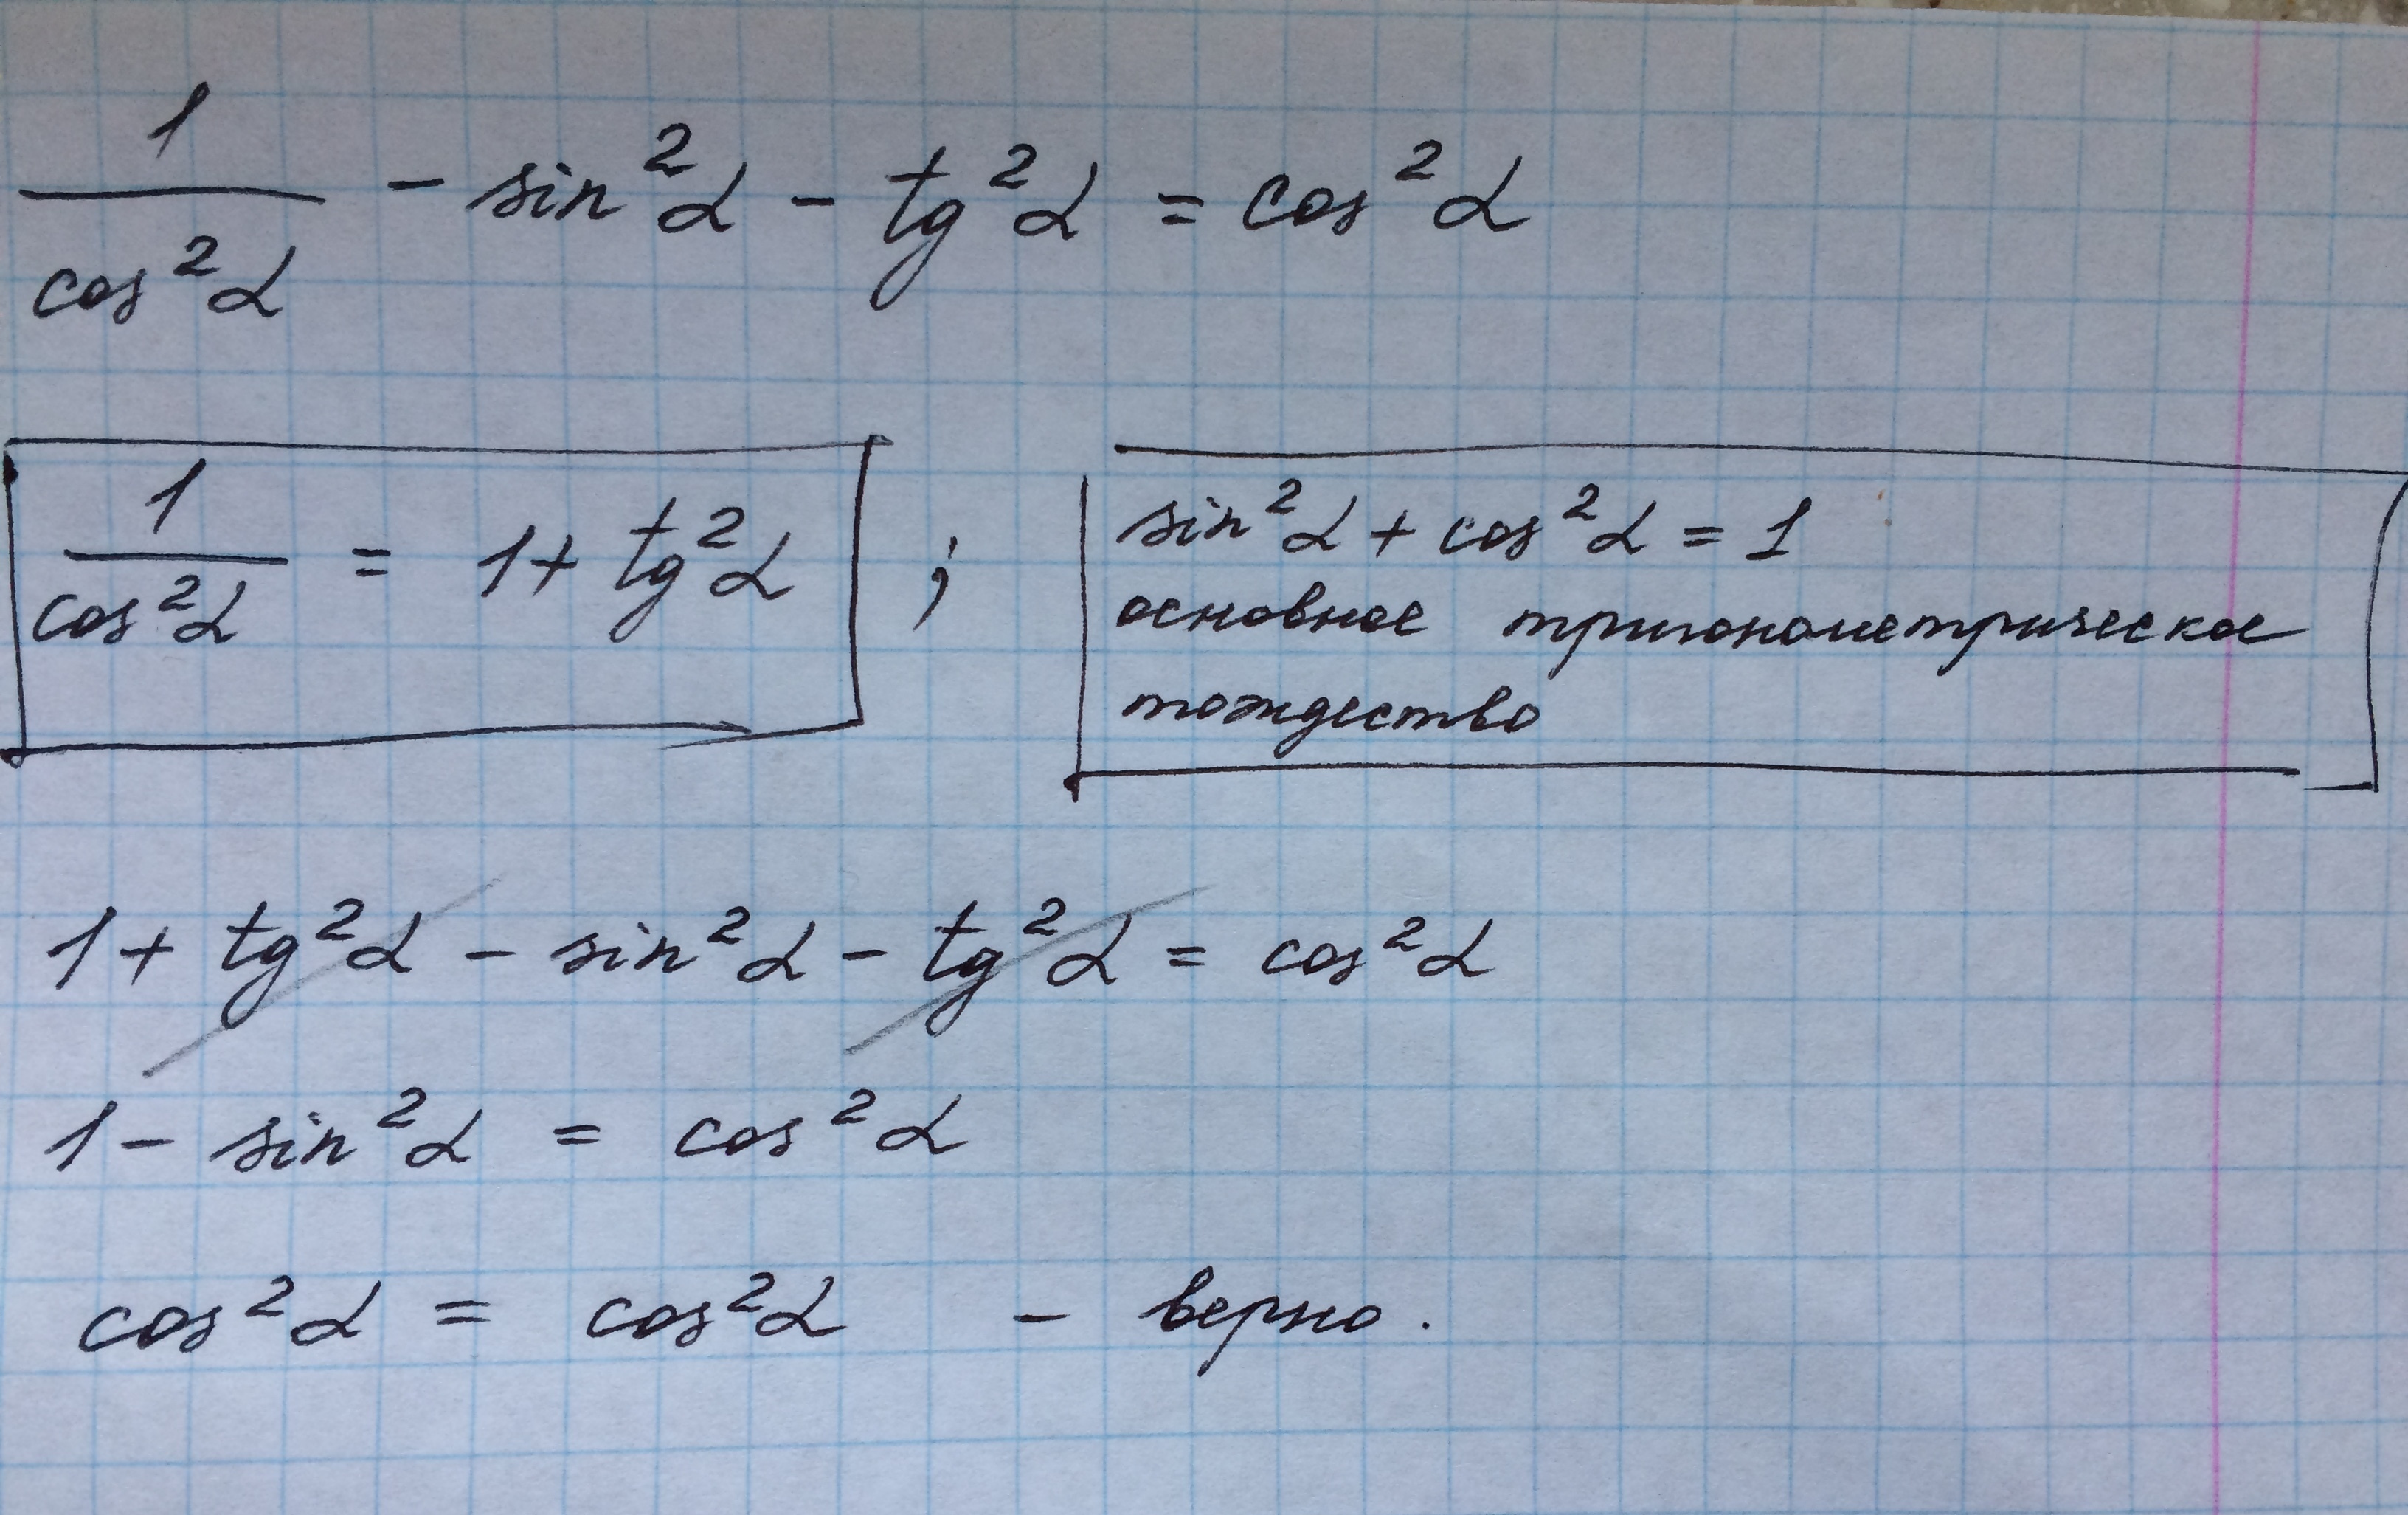 1/cos²α − sin²α − tg²α = cos²α
1/cos²α = 1 + tg²α ;
sin²α + cos²α = 1
основное тригонометрическое
тождество
1 + tg²α − sin²α − tg²α = cos²α
1 − sin²α = cos²α
cos²α = cos²α − верно.